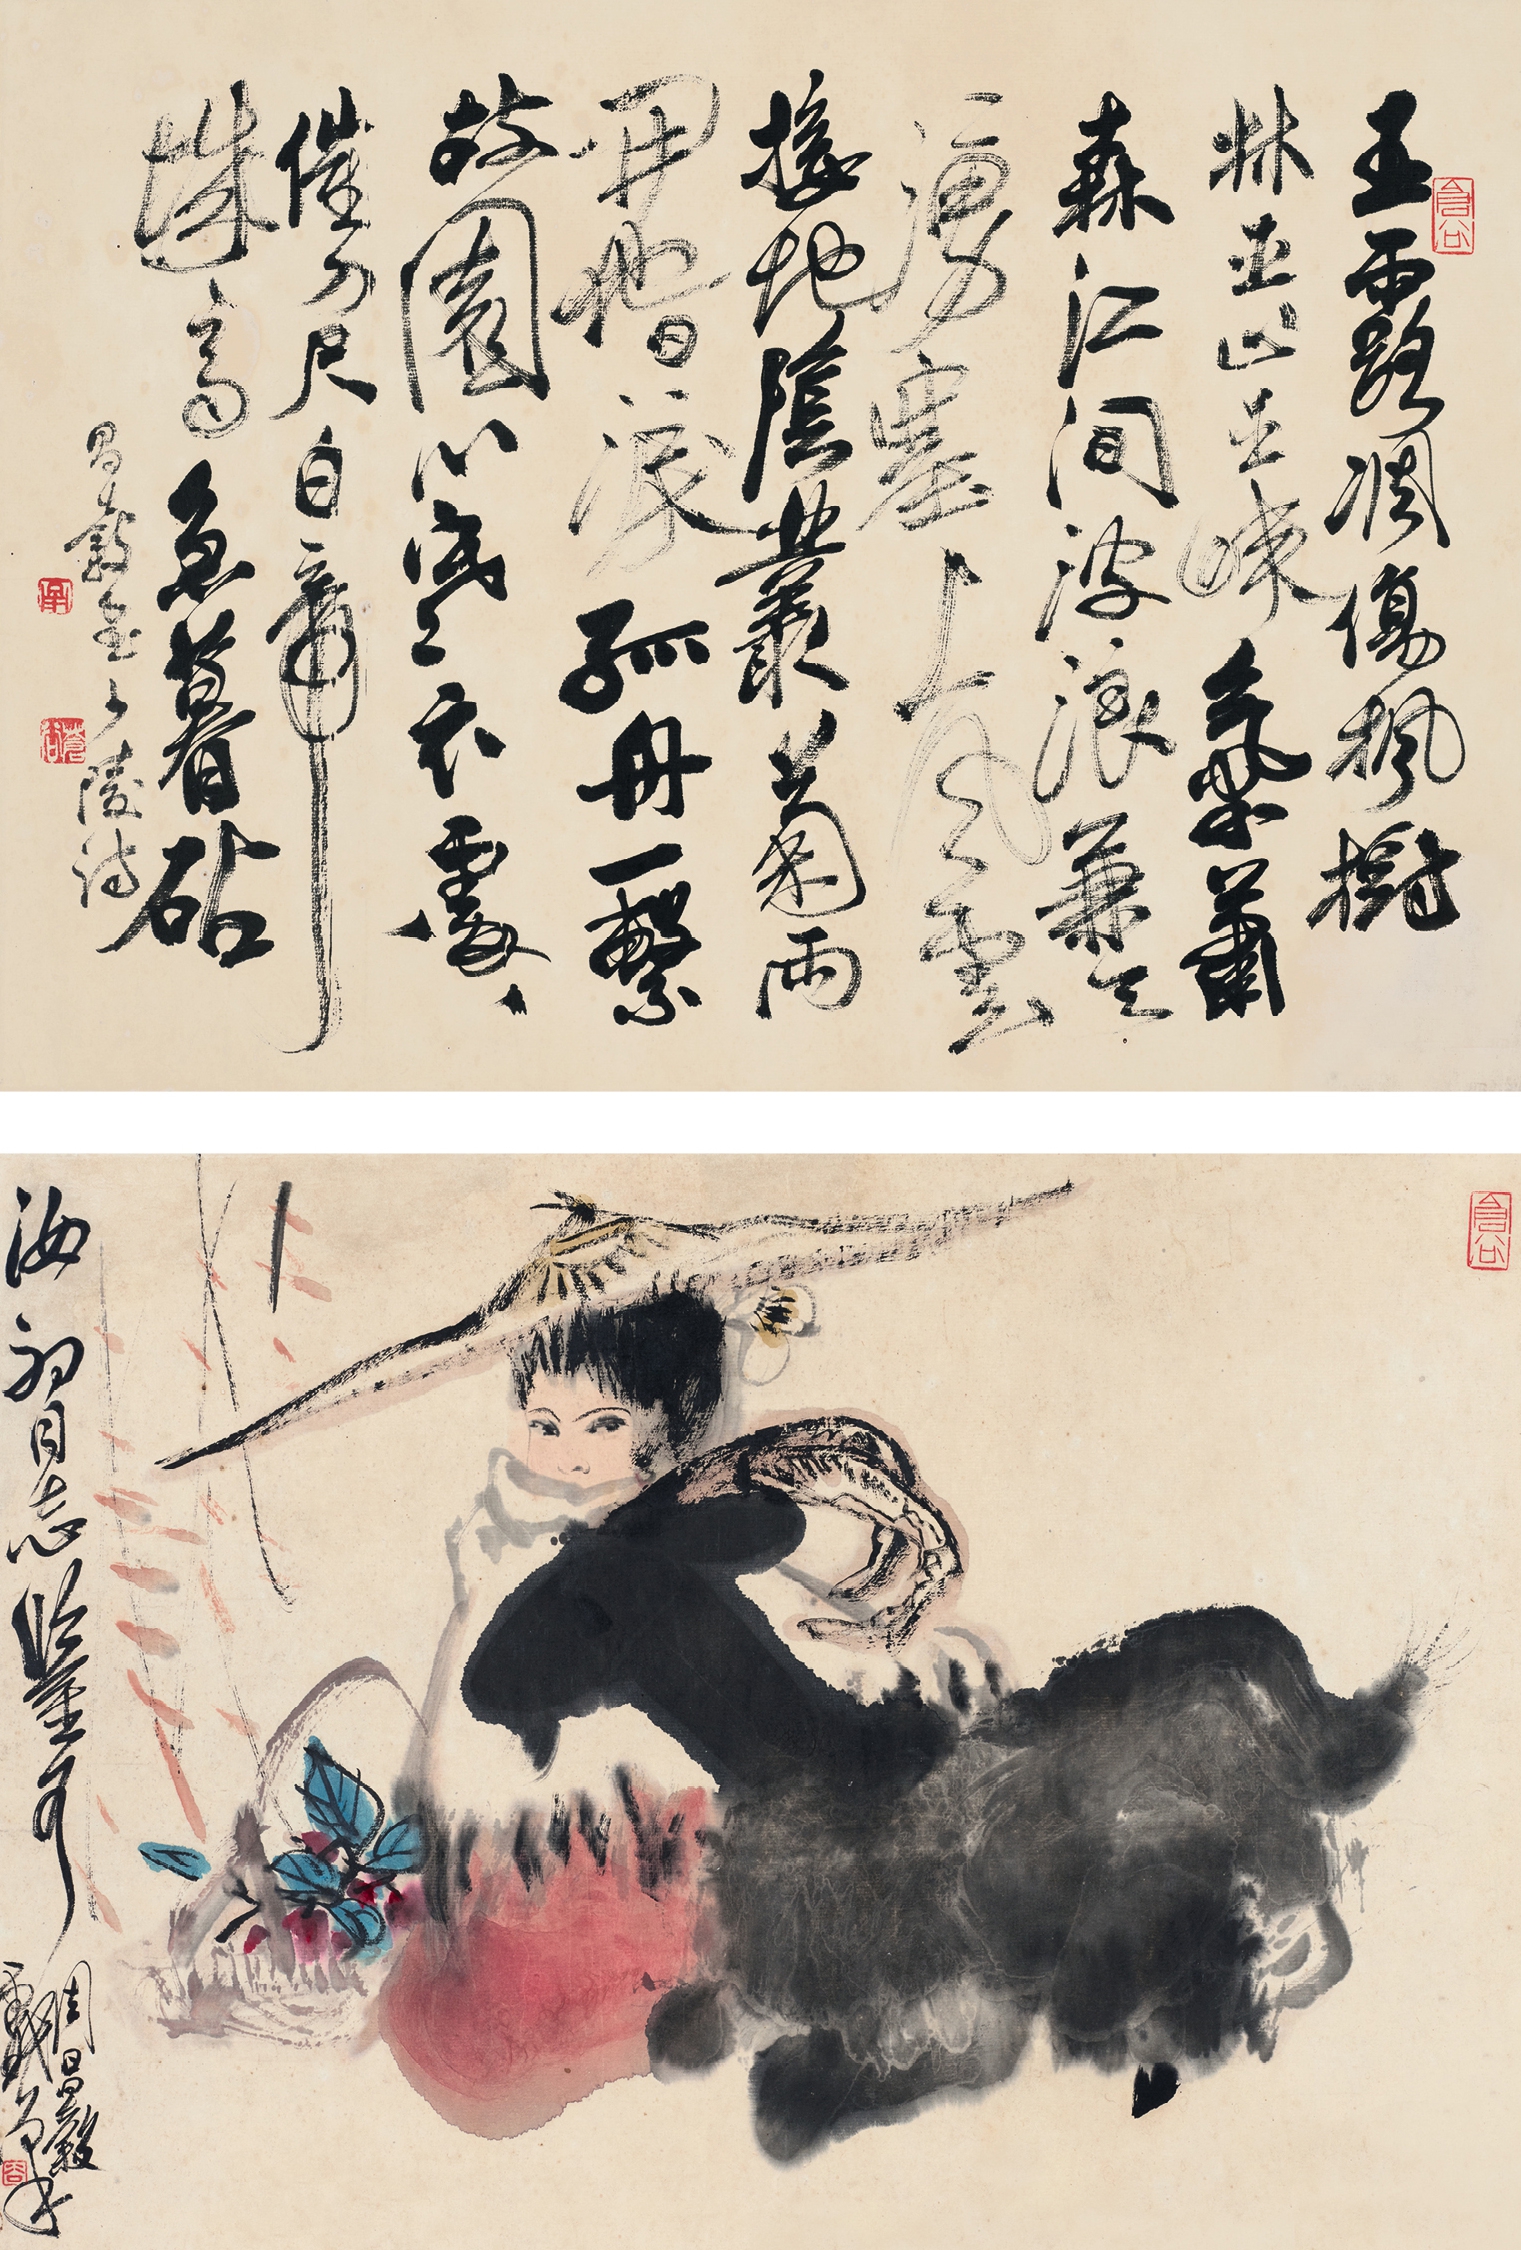 倉谷
玉露凋傷楓樹
林巫山巫峽氣蕭
森江間波浪兼天
湧塞上風雲
接地陰叢菊兩
開他日淚孤舟一繫
故園心寒衣處處
催刀尺白帝
城高急暮砧
昌穀書少陵詩
蒼谷
倉谷
汝初同志鑒
周昌穀
戲
谷